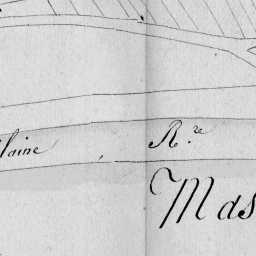 laine R.re
Mas